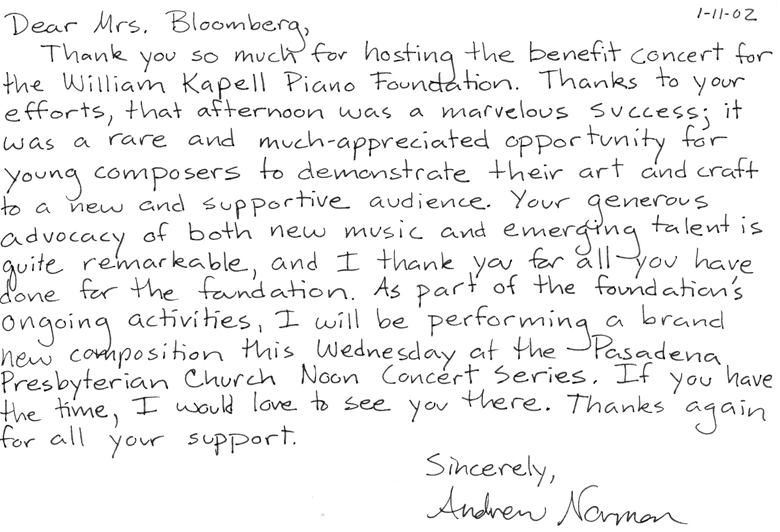 1-11-02
Dear Mrs. Bloomberg,
Thank you so much for hosting the benefit concert for
the William Kapell Piano Foundation. Thanks to your
efforts, that afternoon was a marvelous success; it
was a rare and much-appreciated opportunity for
young composers to demonstrate their art and craft
to a new and supportive audience. Your generous
advocacy of both new music and emerging talent is
quite remarkable, and I thank you for all you have
done for the foundation. As part of the foundation's
ongoing activities, I will be performing a brand
new composition this Wednesday at the Pasadena
Presbyterian Church Noon Concert Series. If you have
the time, I would love to see you there. Thanks again
for all your support.
Sincerely,
Andrew Norman